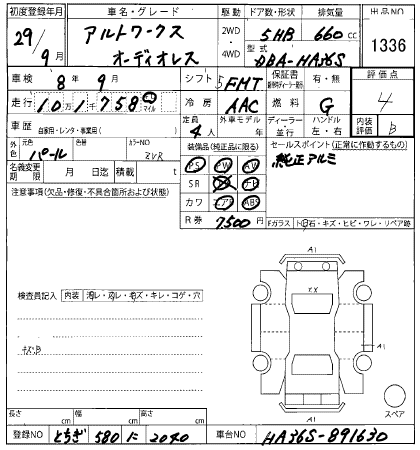 初度登録年月 車名・グレード 駆動 ドア数・形状 排気量 出品NO
29/9月 アルトワークス オーディオレス 2WD 4WD 5HB 660cc 1336
型式 DBA-HA36S
車検 8年9月 シフト 5FMT 保証書 有・無 評価点
走行 10万1千758 km マイル 冷房 AAC 燃料 G 4
車歴 自家用・レンタ・事業用( ) 定員 4人 外車モデル 年 ディーラー・並行 ハンドル 左・右 内装評価 B
外色 元色 パール 色替 カラーNO ZVR 装備品(純正品に限る) セールスポイント(正常に作動するもの)
名義変更期限 月 日迄 積載 t PS PW AW 純正アルミ
注意事項(欠品・修復・不具合箇所および状態) SR ナビ
カワ エアB ABS
R券 7,500円 Fガラス 飛石・キズ・ヒビ・ワレ・リペア跡
A1
検査員記入 内装 汚レ・コレ・キズ・キレ・コゲ・穴 XX
A1
キズB
A1 スペア
長さ cm 幅 cm 高さ cm
登録NO とちぎ 580 に 2040 車台NO HA36S-891630